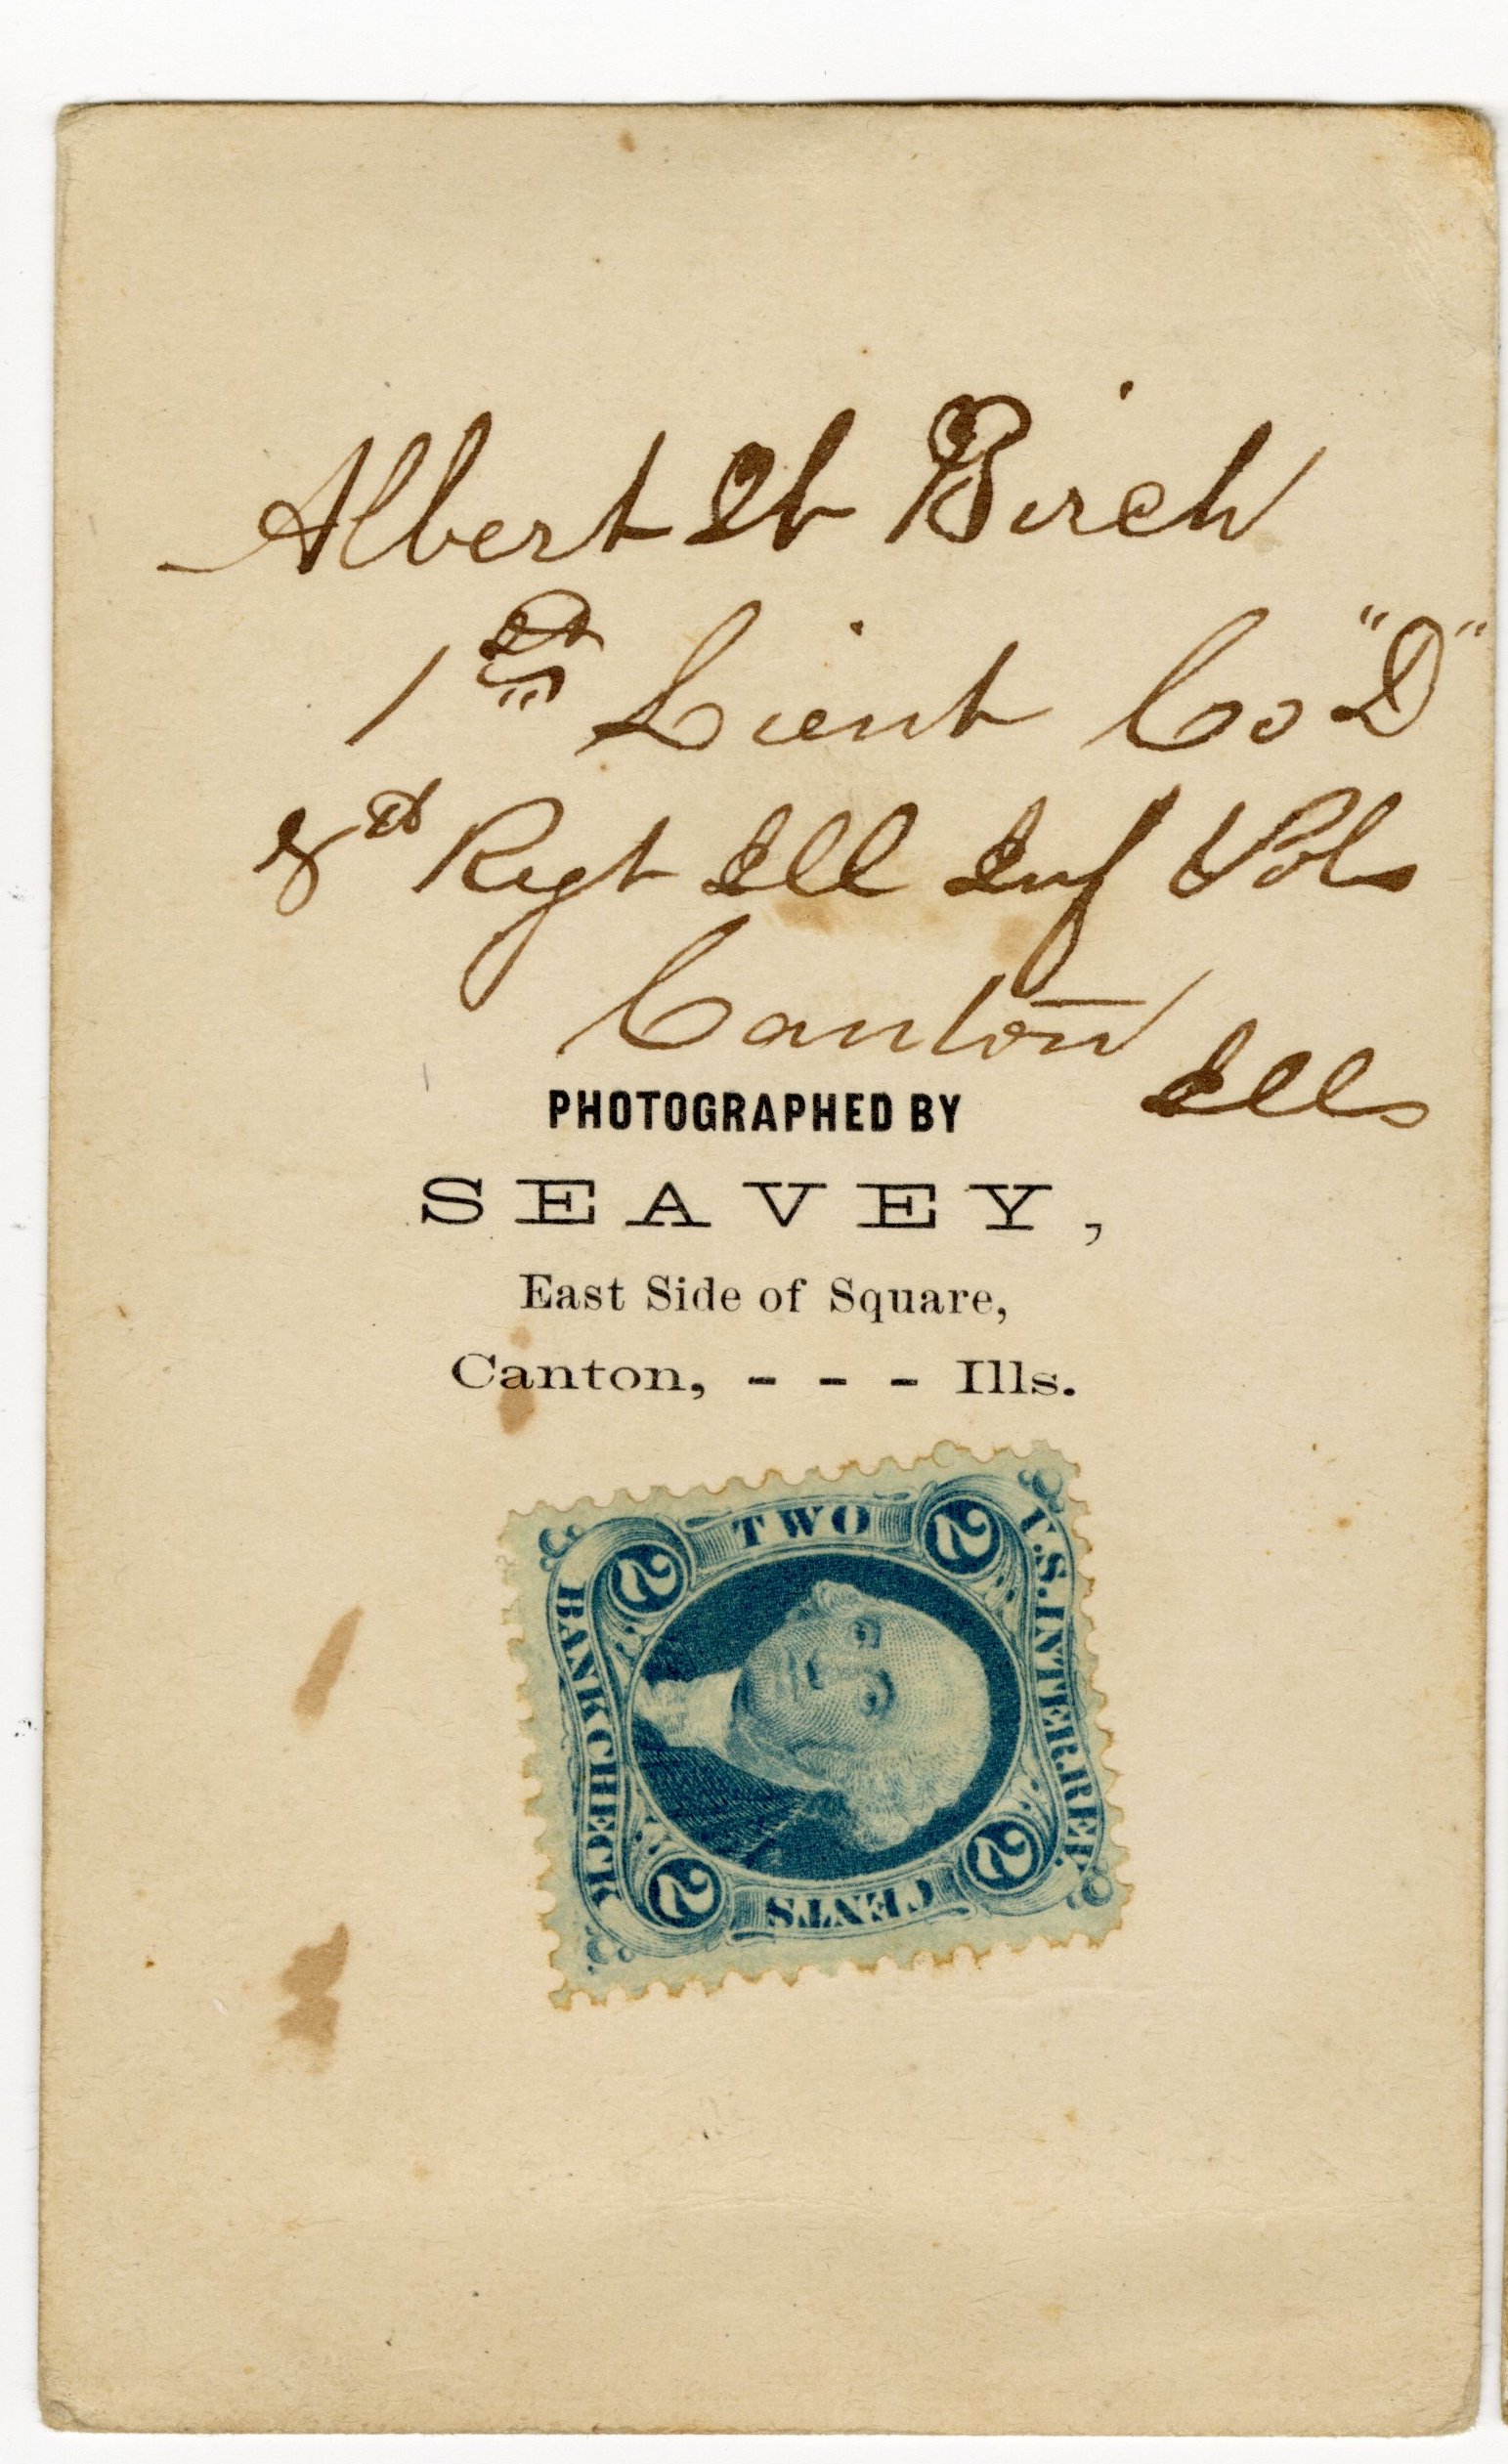 Albert H Birch
1st Lieut Co "D"
8th Regt Ill Inf Vols
Canton
Ills
PHOTOGRAPHED BY
SEAVEY,
East Side of Square,
Canton, - - - Ills.
U.S. INTER. REV.
TWO
CENTS
BANK CHECK
2 2
2 2